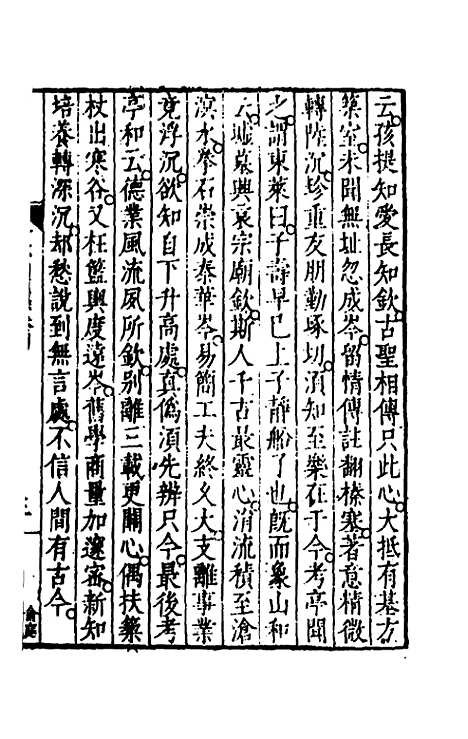 云孩提知愛長知欽古聖相傳只此心大抵有基方
築室未聞無址忽成岑留情傳註翻榛塞著意精微
轉陸沉珍重友朋勤琢切須知至樂在于今考亭聞
之謂東萊曰子壽早已上子靜船了也既而象山和
云墟墓興哀宗廟欽斯人千古最靈心涓流積至滄
溟水拳石崇成泰華岑易簡工夫終久大支離事業
竟浮沉欲知自下升高處真僞須先辨只今最後考
亭和云德業風流夙所欽别離三載更關心偶扶藜
杖出寒谷又枉籃輿度遠岑舊學商量加邃宻新知
培養轉深沉却愁說到無言處不信人間有古今